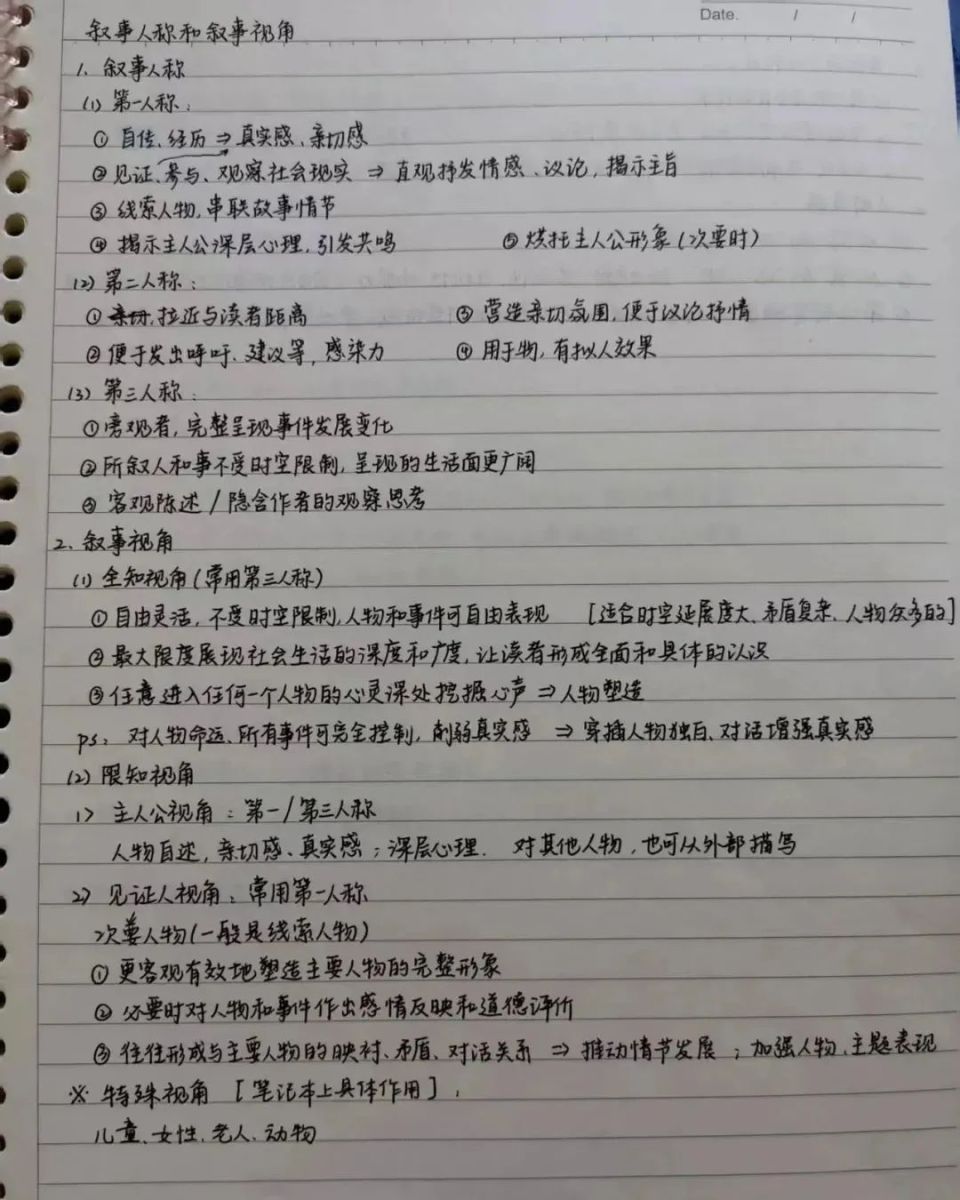 Date. / /
叙事人称和叙事视角
1. 叙事人称
(1) 第一人称：
① 自传、经历 ⇒ 真实感、亲切感
② 见证、参与、观察社会现实 ⇒ 直观抒发情感、议论，揭示主旨
③ 线索人物，串联故事情节
④ 揭示主人公深层心理，引发共鸣 ⑤ 烘托主人公形象(次要时)
(2) 第二人称：
① 亲切，拉近与读者距离 ③ 营造亲切氛围，便于议论抒情
② 便于发出呼吁、建议等，感染力 ④ 用于物，有拟人效果
(3) 第三人称：
① 旁观者，完整呈现事件发展变化
② 所叙人和事不受时空限制，呈现的生活面更广阔
③ 客观陈述 / 隐含作者的观察思考
2. 叙事视角
(1) 全知视角(常用第三人称)
① 自由灵活，不受时空限制，人物和事件可自由表现 [适合时空延展度大、矛盾复杂、人物众多的]
② 最大限度展现社会生活的深度和广度，让读者形成全面和具体的认识
③ 任意进入任何一个人物的心灵深处挖掘心声 ⇒ 人物塑造
ps：对人物命运、所有事件可完全控制，削弱真实感 ⇒ 穿插人物独白、对话增强真实感
(2) 限知视角
1> 主人公视角：第一/第三人称
人物自述，亲切感、真实感；深层心理. 对其他人物，也可从外部描写
2> 见证人视角：常用第一人称
次要人物(一般是线索人物)
① 更客观有效地塑造主要人物的完整形象
② 必要时对人物和事件作出感情反映和道德评价
③ 往往形成与主要人物的映衬、矛盾、对话关系 ⇒ 推动情节发展；加强人物、主题表现
※ 特殊视角 [笔记本上具体作用]：
儿童、女性、老人、动物